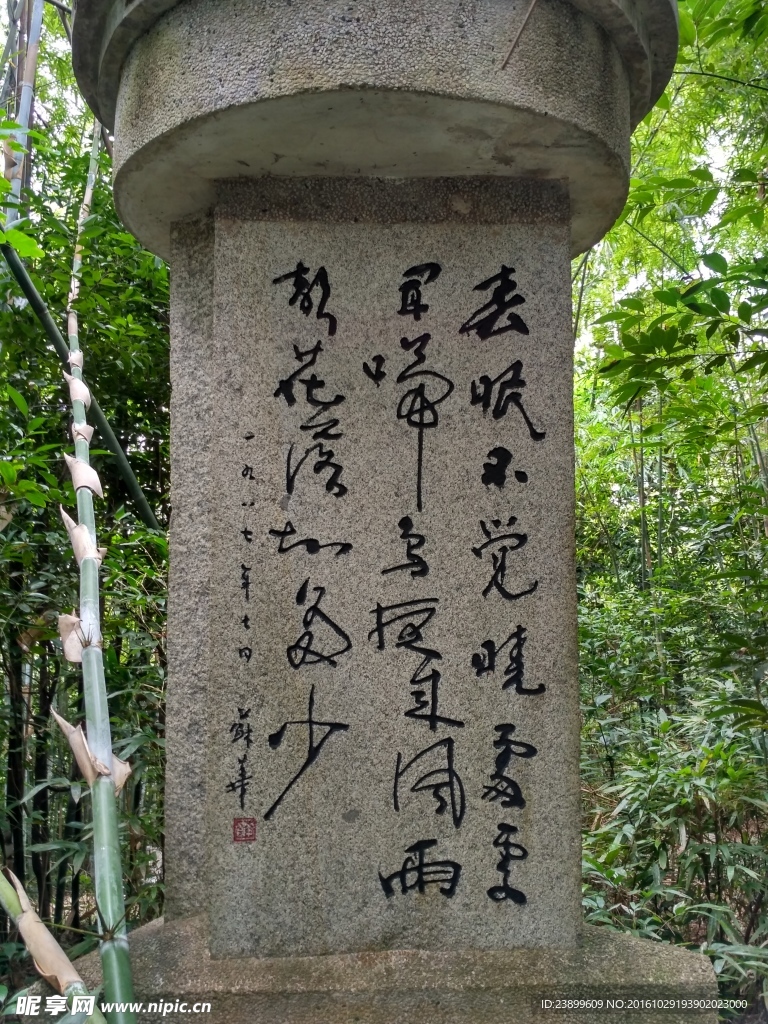 春眠不覺曉處處
聞啼鳥夜來風雨
聲花落知多少
一九八七年十月 蘇華
昵享网 www.nipic.cn
ID:23899609 NO:20161029193902023000